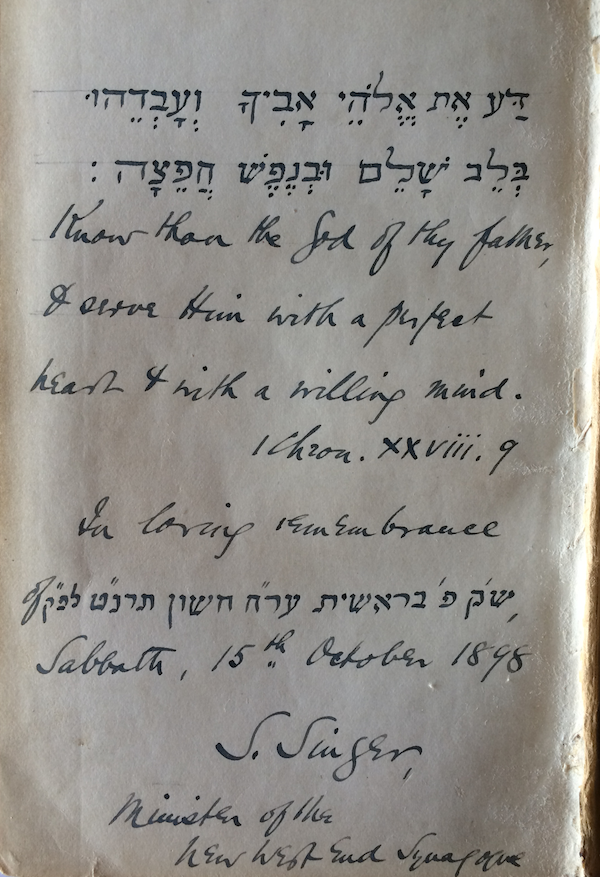 דַּע אֶת אֱלֹהֵי אָבִיךָ וְעָבְדֵהוּ
בְּלֵב שָׁלֵם וּבְנֶפֶשׁ חֲפֵצָה :
Know thou the God of thy father,
& serve Him with a perfect
heart & with a willing mind.
1 Chron. XXVIII. 9
In loving remembrance
of ש״ק פ׳ בראשית ער״ח חשון תרנ״ט לפ״ק,
Sabbath, 15th October 1898
S. Singer,
Minister of the
New West End Synagogue